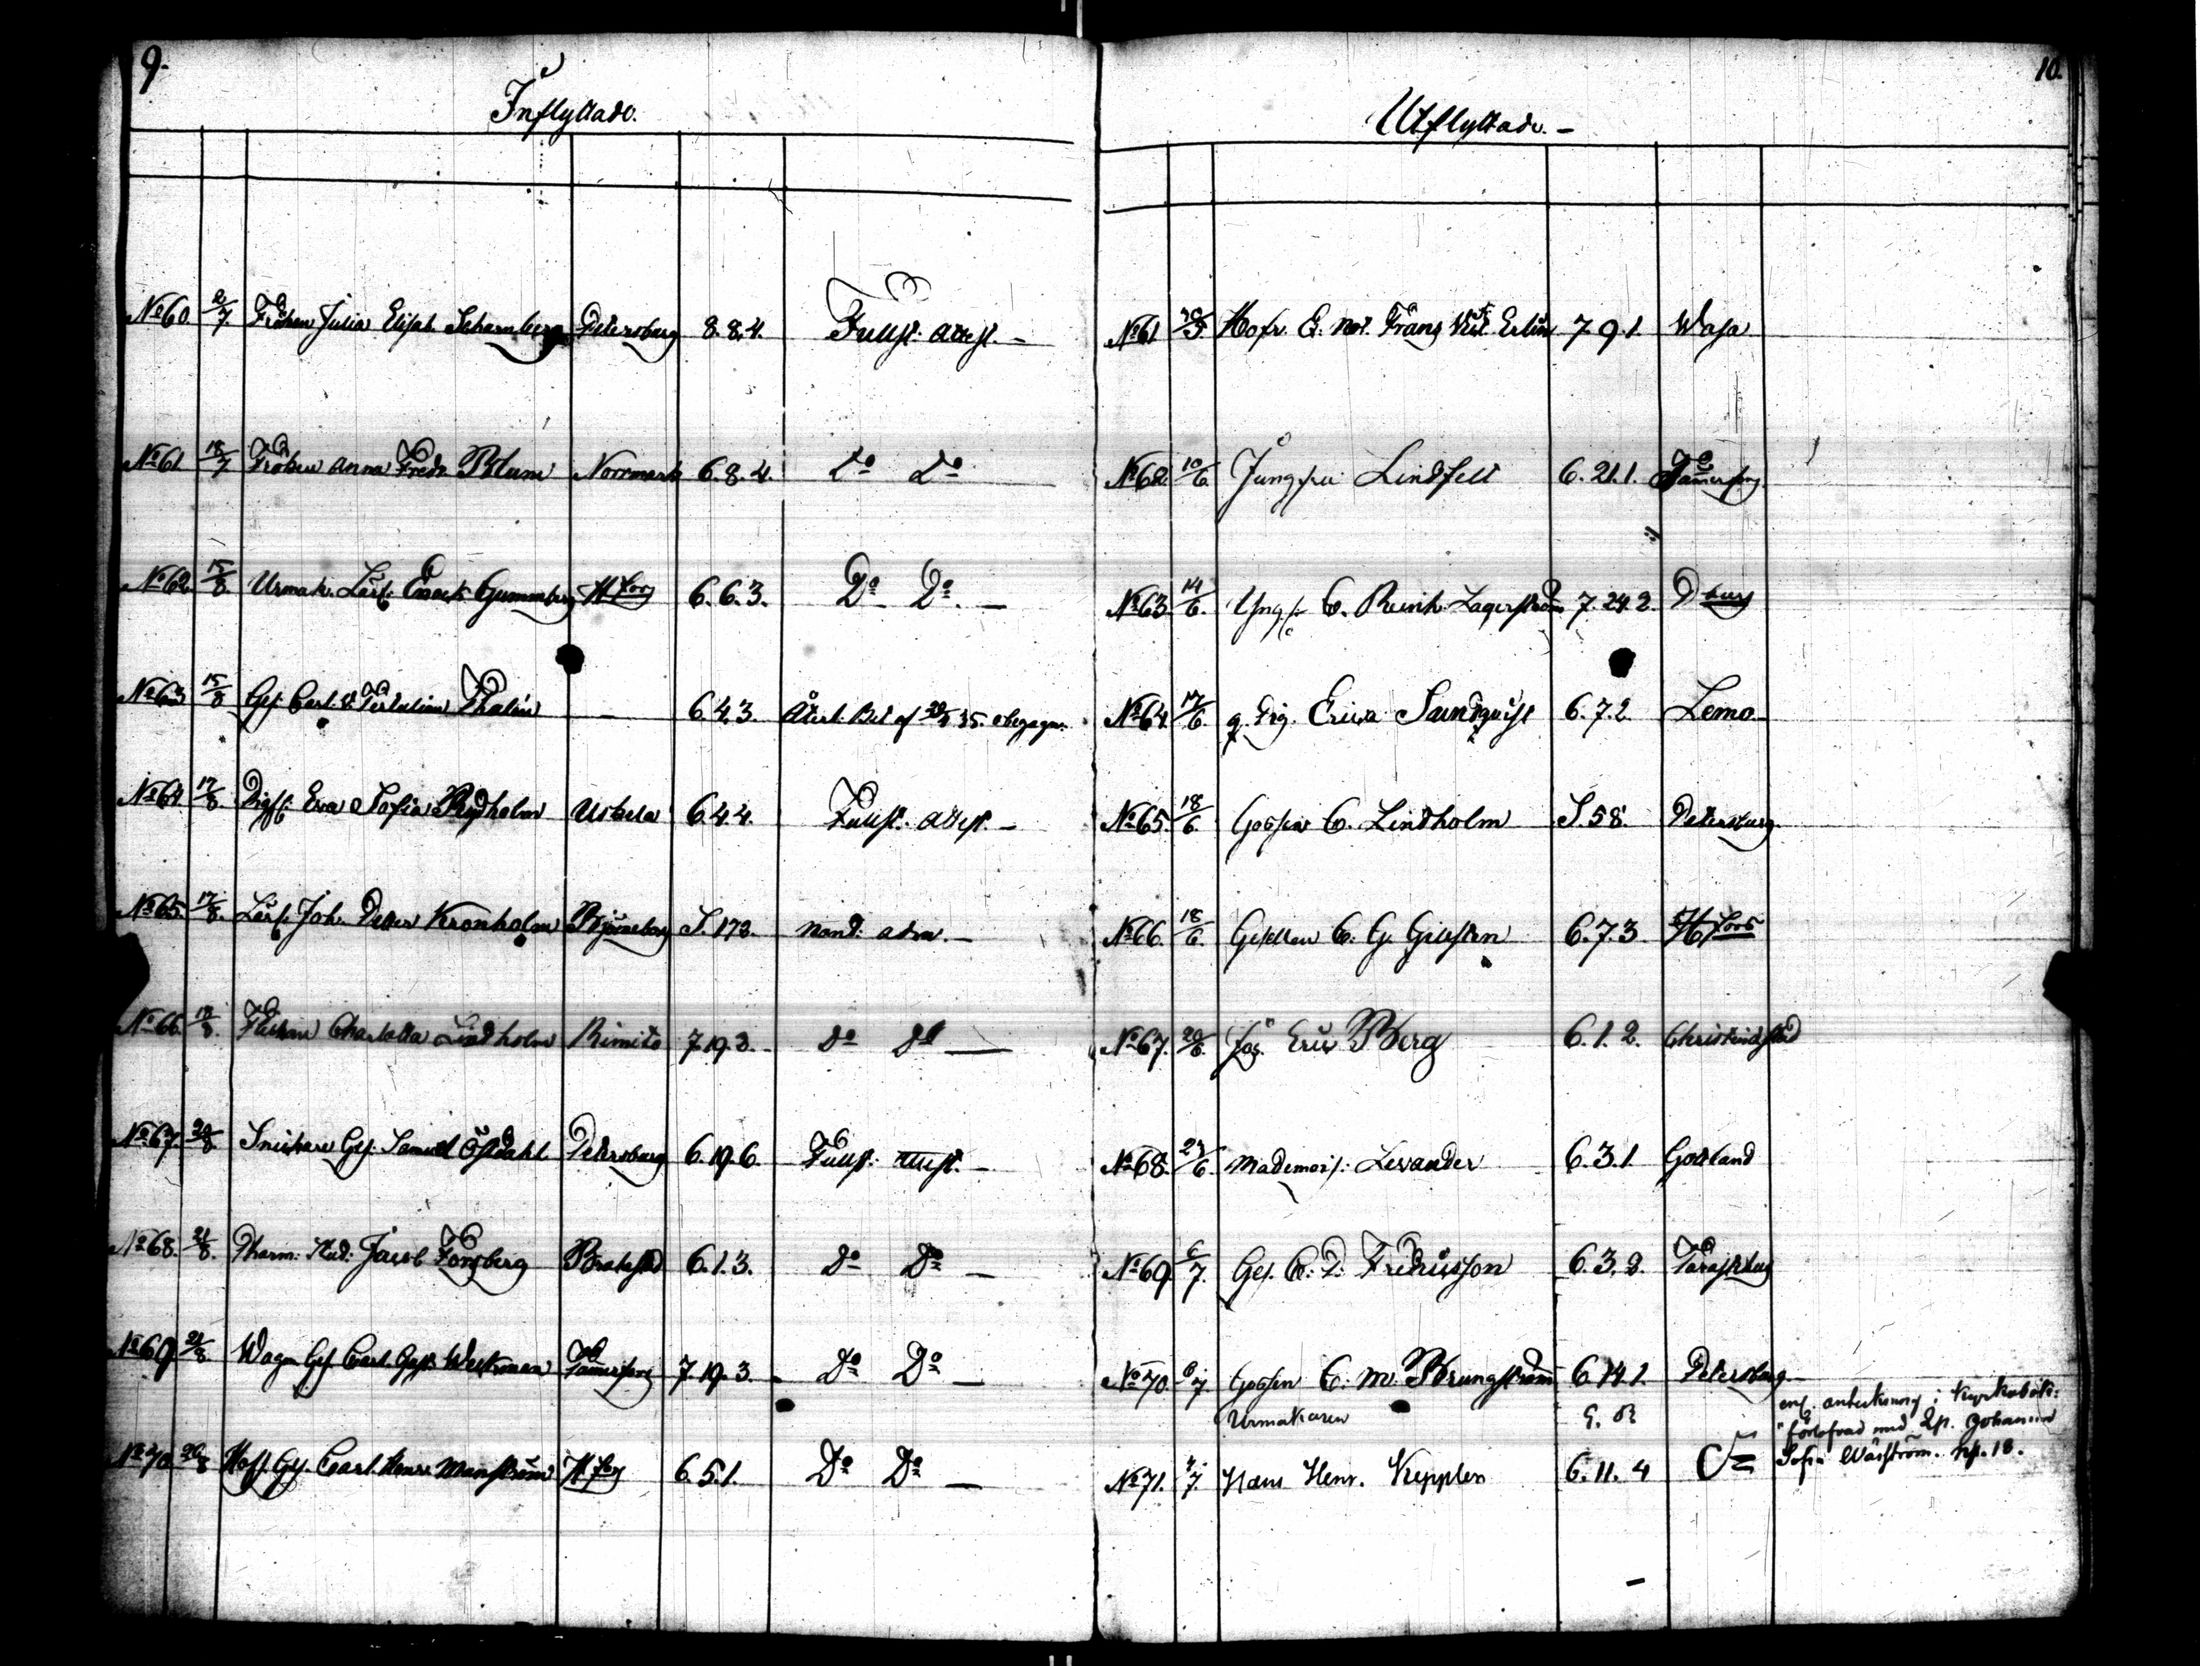 9.
Inflyttade.
No 60. 2/7. Fröken Julia Elisab. Scharnberg Petersburg 8.8.4. Fullst. attest. -
No 61 18/7 Fröken Anna Fredr. Blum Norrmark 6.8.4. Do Do
No 62 15/8. Urmak. Lärl. Enock Gummberg H.fors 6.6.3. Do Do. -
No 63 15/8 Ges. Carl. Thalin - 6.4.3. Återl. Bet. af 35. obegagn.
No 64 17/8 Pigf. Eva Sofia Rydholm Uskela 6.4.4. Fullst. attest. -
No 65. 17/8. Lärl. Joh. Petter Kronholm Björneborg S. 173. nand. adm. -
No 66. 18/8. Charlotta Lindholm Rimito 7.19.3. Do Do -
No 67. 20/8 Snickare Ges. Samuel Östdahl Petersburg 6.19.6. Fullst. attest. -
No 68. 21/8. Pharm. Stud. Jacob Forsberg Brahestad 6.1.3. Do Do -
No 69. 21/8 Wagn. Ges. Carl Gust. Westerman Tammerfors 7.19.3. Do Do -
No 70. 26/8 Ges. Carl Henr. Manström H.fors 6.5.1. Do Do -
10.
Utflyttade. -
No 61 30/5. Hofr. E. not. Frans Wil. Erlin 7 9 1. Wasa
No 62. 10/6. Jungfru Lindfelt 6.21.1. Tammerfors
No 63. 14/6. Yngl. C. Reinh. Lagerström 7.24.2. P burg
No 64. 17/6. q. Pig. Erica Sandqvist 6.7.2. Lemo
No 65. 18/6. Gossen C. Lindholm S. 58. Petersburg.
No 66. 18/6. Gesellen C. G. Gellsten 6.7.3 H.fors
No 67. 20/6. Eric Berg 6.1.2. Christinestad
No 68. 27/6. Mademois. Levander 6.3.1 Gottland
No 69. 6/7. Ges. C. D. Fredricsson 6.3.2. Tavastehus
No 70. 6/7. Gossen C. M. Brungström 6.14.1. Petersburg
Urmakaren G. R
enl. anteckning i Kyrkobok.
"förlofvad med Pp. Johanna
Sofia Wäström. Np. 18.
No 71. 7/7. Hans Henr. Keppler 6.11.4